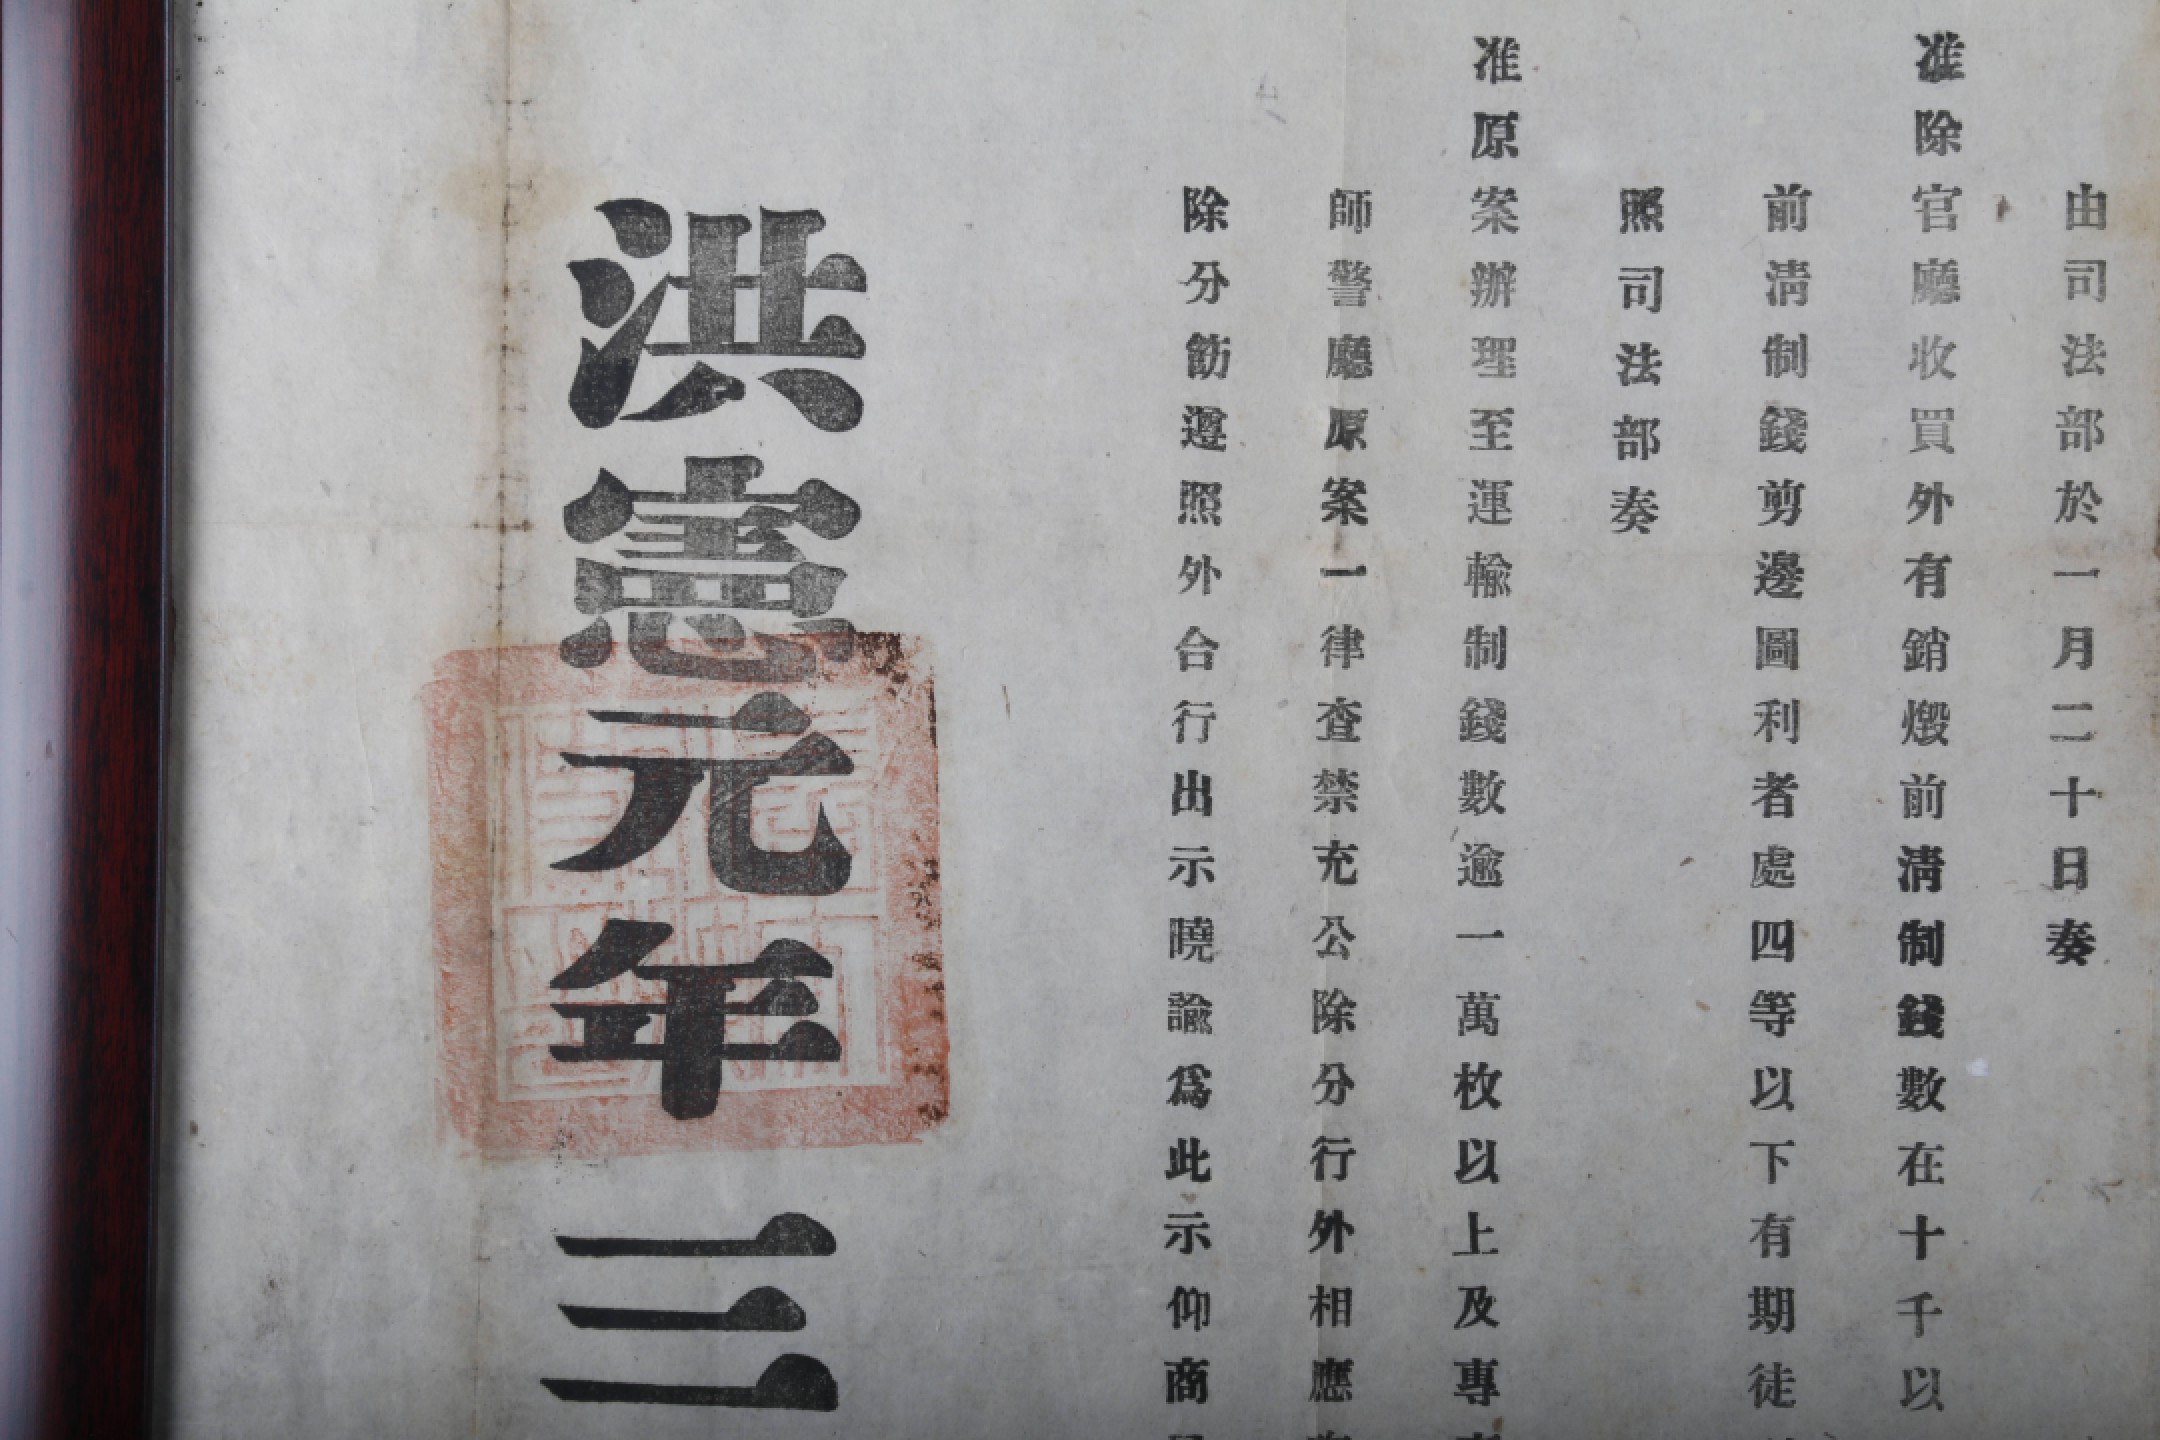 由司法部於一月二十日奏
准除官廳收買外有銷燬前淸制錢數在十千以
前淸制錢剪邊圖利者處四等以下有期徒
照司法部奏
准原案辦理至運輸制錢數逾一萬枚以上及專
師警廳原案一律查禁充公除分行外相應
除分飭遵照外合行出示曉諭爲此示仰商
洪憲元年三